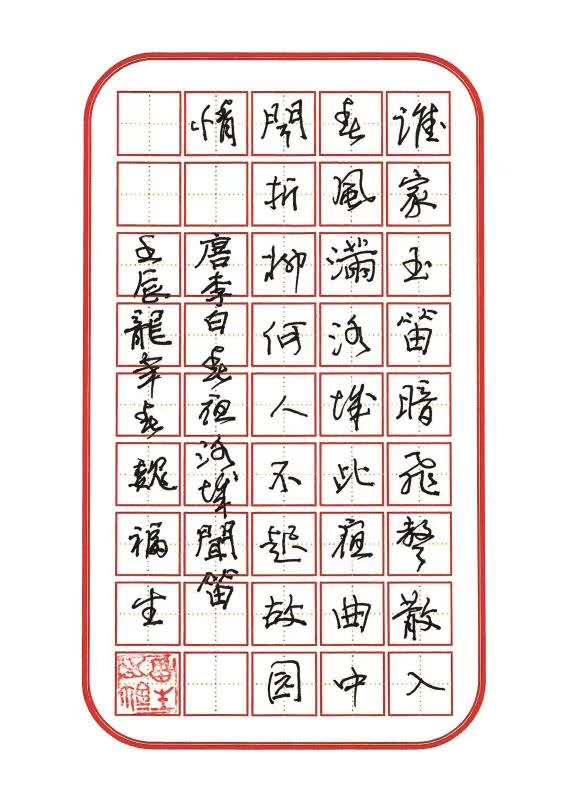 誰家玉笛暗飛聲散入
春風滿洛城此夜曲中
聞折柳何人不起故园
情
唐李白春夜洛城聞笛
壬辰龍年春魏福生